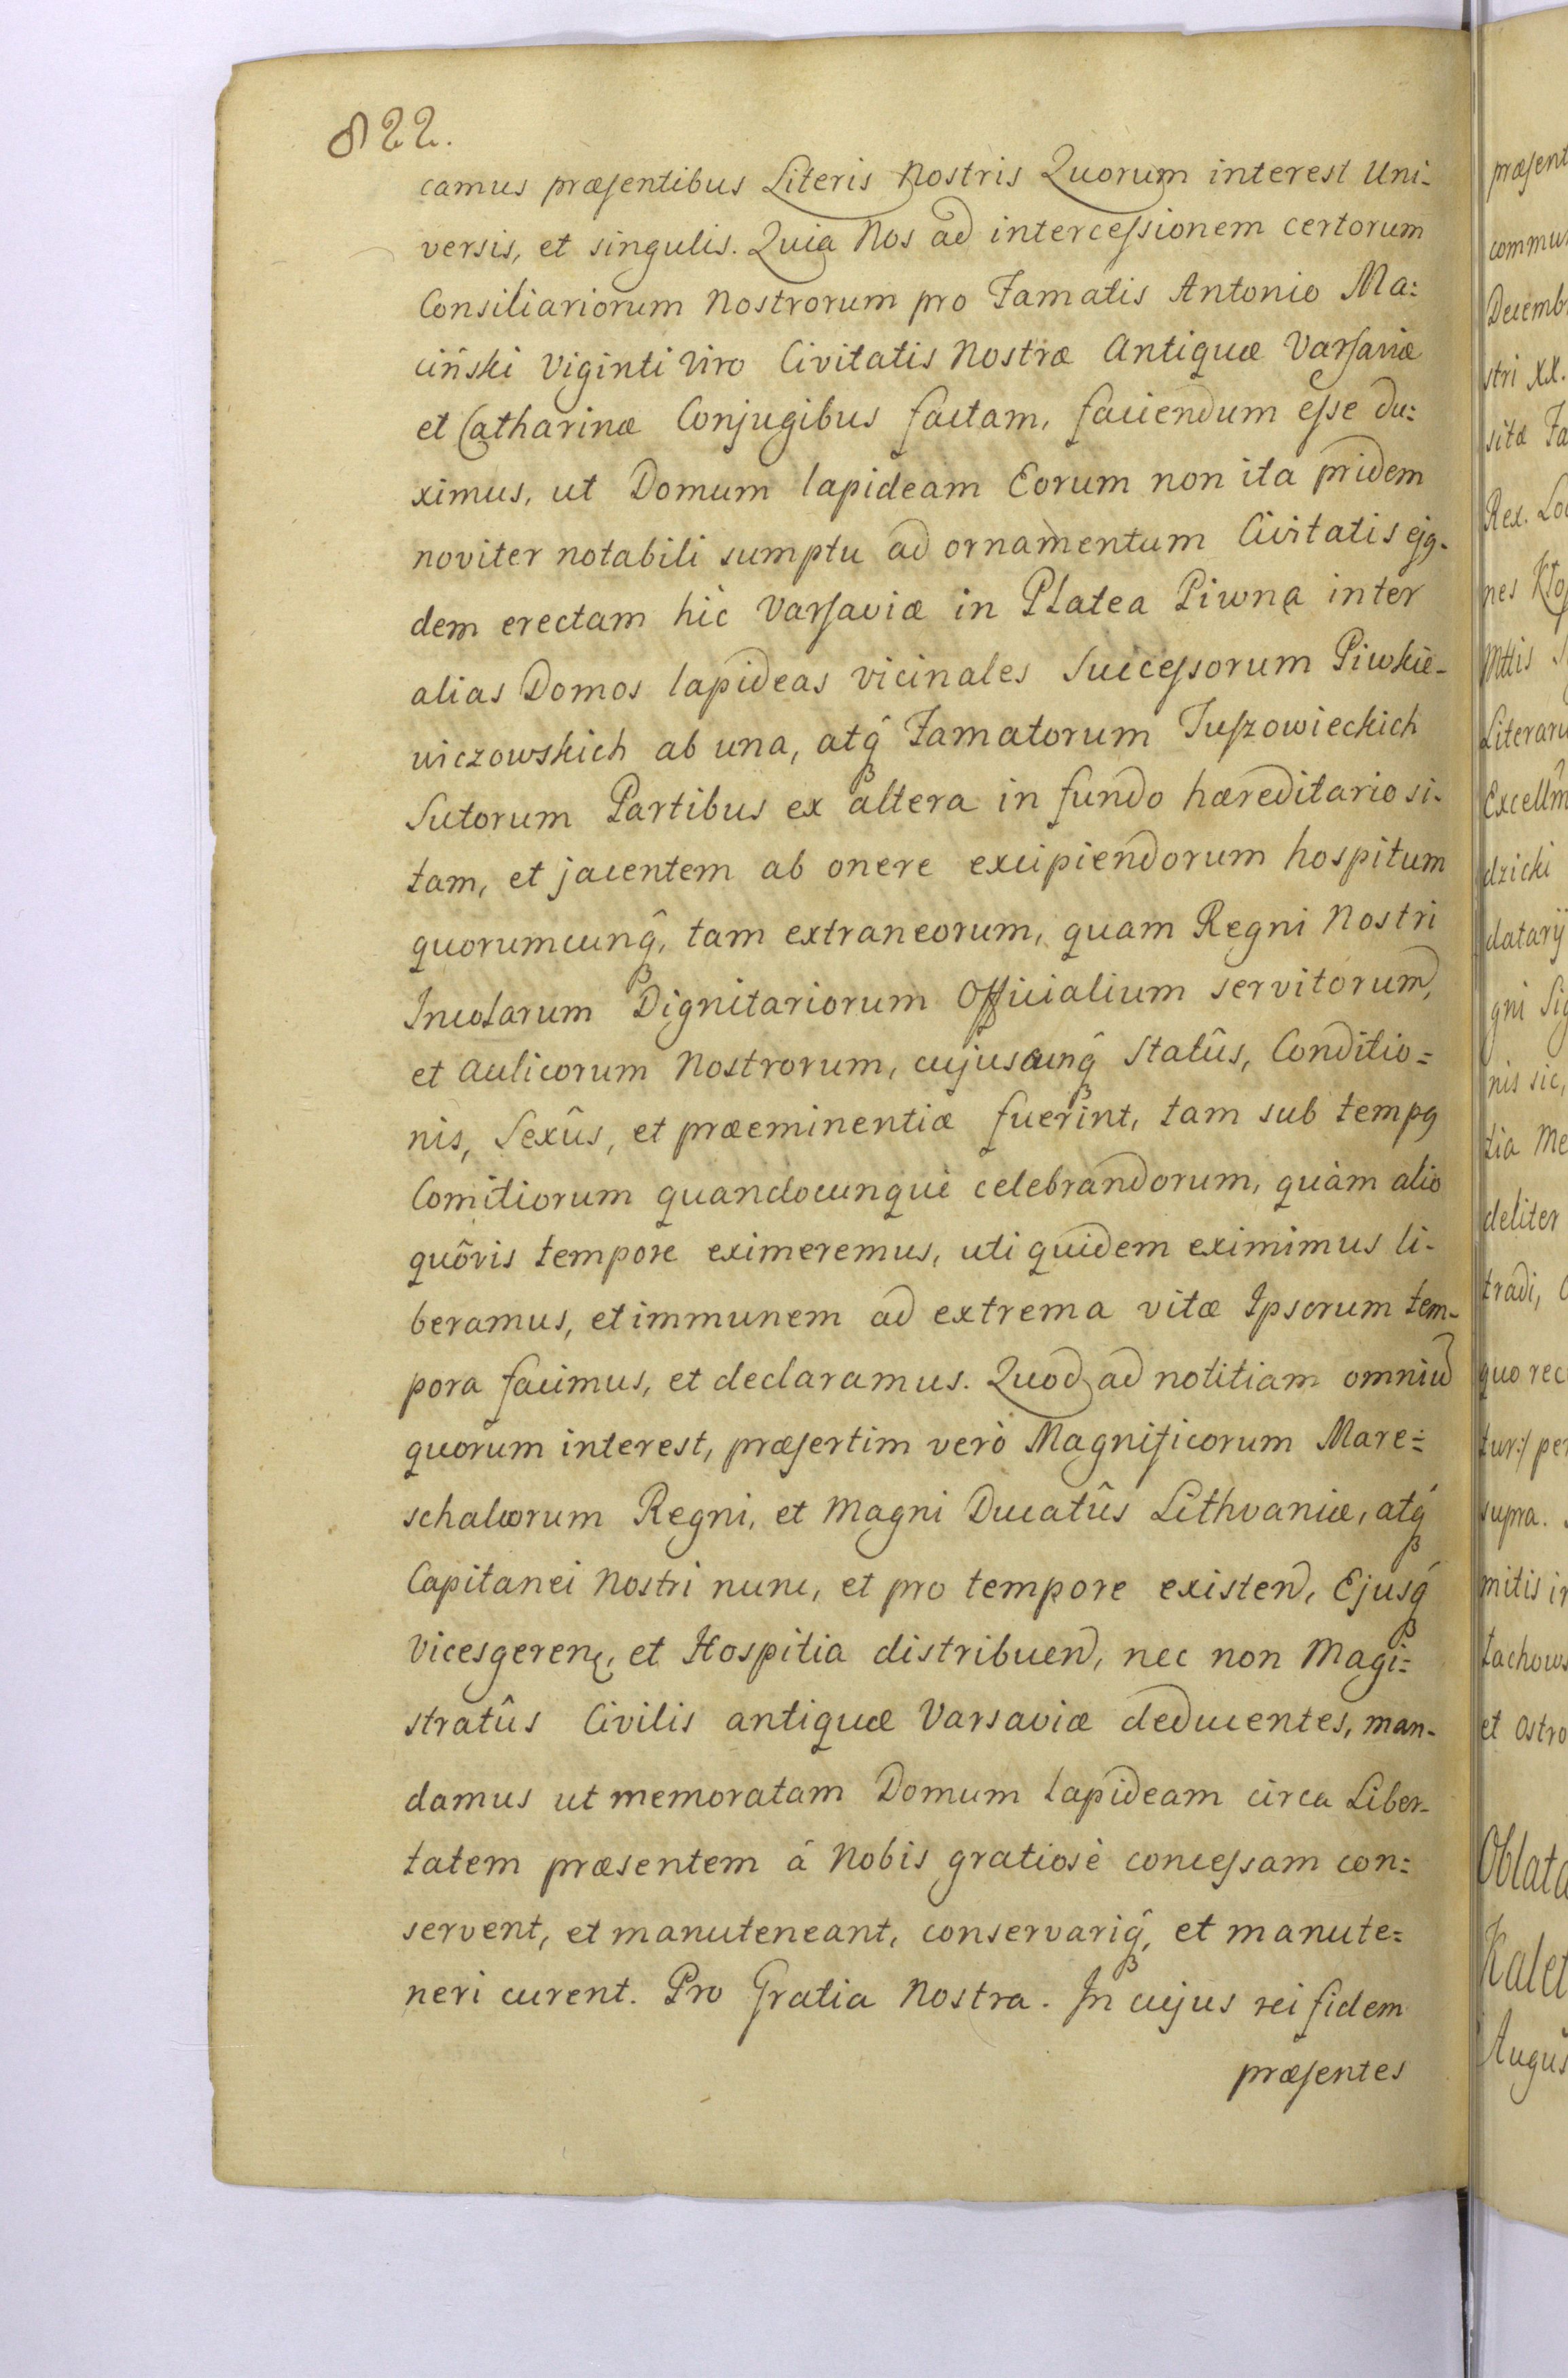 822.
camus præsentibus Literis Nostris Quorum interest Uni-
versis, et singulis. Quia Nos ad intercessionem certorum
Consiliariorum Nostrorum pro Famatis Antonio Ma=
ciński Viginti Viro Civitatis Nostræ Antiquæ Varsaviæ
et Catharinæ Conjugibus factam, faciendum esse du=
ximus, ut Domum lapideam Eorum non ita pridem
noviter notabili sumptu ad ornamentum Civitatis ejq.
dem erectam hic Varsaviæ in Platea Piwna inter
alias Domos lapideas vicinales Successorum Piwkie-
wiczowskich ab una, atq̂ Famatorum Juszowieckich
Sutorum Partibus ex altera in fundo hæreditario si-
tam, et jacentem ab onere excipiendorum hospitum
quorumcunq̂, tam extraneorum, quam Regni Nostri
Incolarum Dignitariorum Officialium servitorum,
et Aulicorum Nostrorum, cujuscunq̂ Statûs, Conditio=
nis, Sexûs, et præeminentiæ fuerint, tam sub tempq
Comitiorum quandocunque celebrandorum, quàm alio
quôvis tempore eximeremus, uti quidem eximimus li-
beramus, et immunem ad extrema vitæ Ipsorum tem-
pora facimus, et declaramus. Quod ad notitiam omniu
quorum interest, præsertim verò Magnificorum Mare=
schalcorum Regni, et Magni Ducatûs Lithvaniæ, atq́
Capitanei Nostri nunc, et pro tempore existen, Ejusq́
Vicesgeren, et Hospitia distribuen, nec non Magi=
stratûs Civilis antiquæ Varsaviæ deducentes, man-
damus ut memoratam Domum lapideam circa Liber-
tatem præsentem á Nobis gratiosè concessam con=
servent, et manuteneant, conservariq̂, et manute=
neri curent. Pro Gratia Nostra. In cujus rei fidem
præsentes